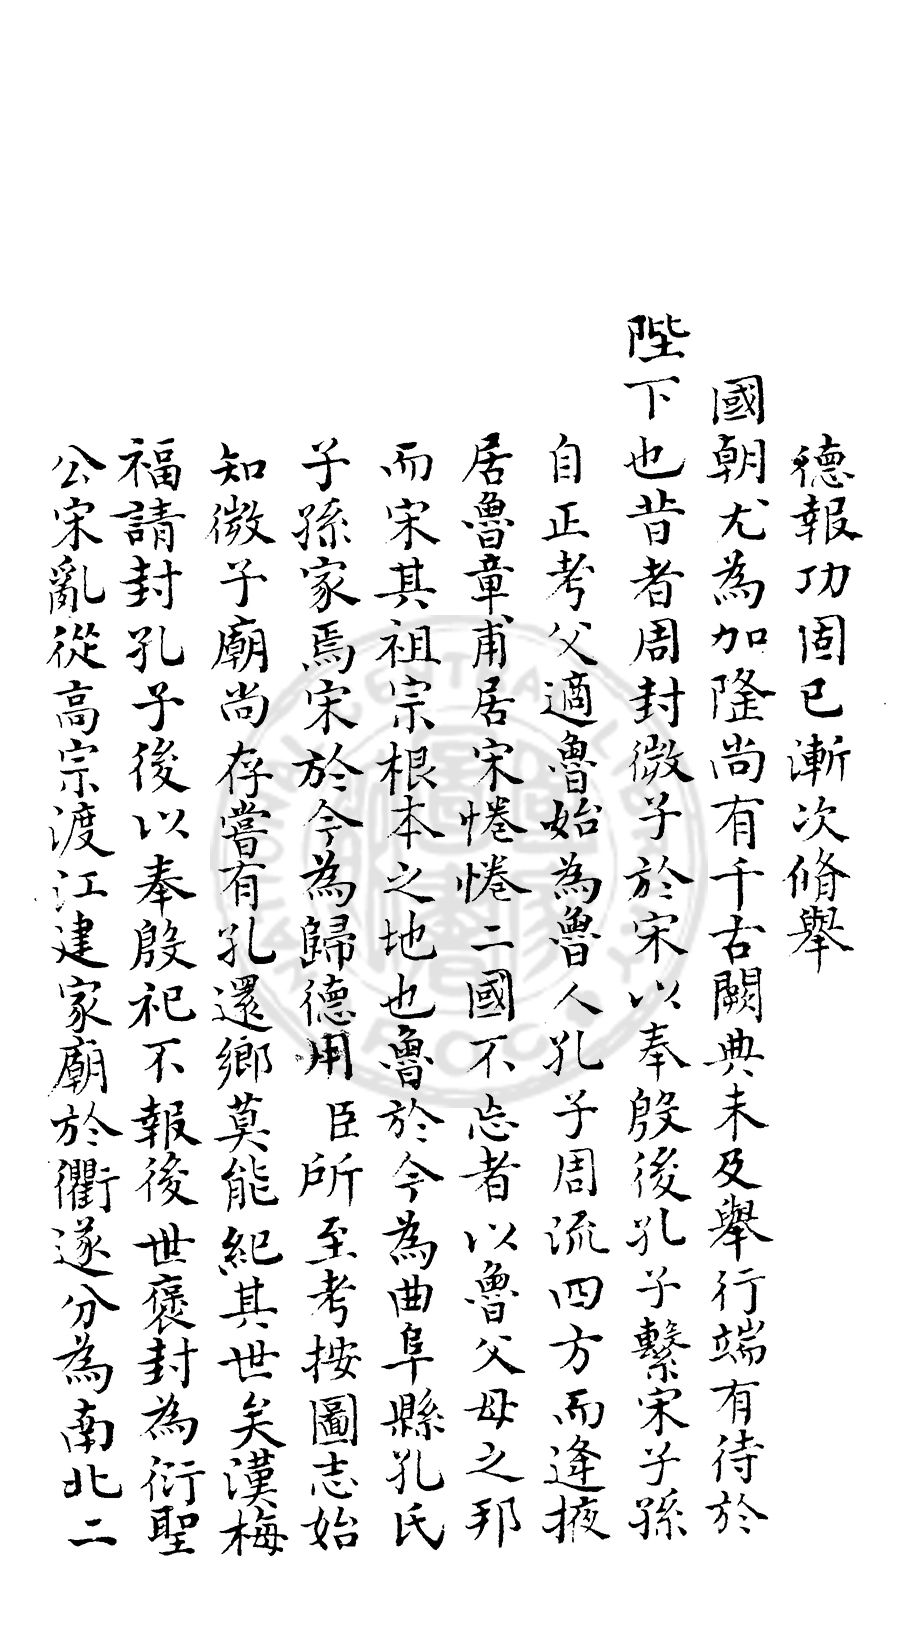 德報功固已漸次脩舉
國朝尤為加隆尚有千古闕典未及舉行端有待於
陛下也昔者周封微子於宋以奉殷後孔子繫宋子孫
自正考父適魯始為魯人孔子周流四方而逢掖
居魯章甫居宋惓惓二國不忘者以魯父母之邦
而宋其祖宗根本之地也魯於今為曲阜縣孔氏
子孫家焉宋於今為歸德用臣所至考按圖志始
知微子廟尚存嘗有孔還鄉莫能紀其世矣漢梅
福請封孔子後以奉殷祀不報後世褒封為衍聖
公宋亂從高宗渡江建家廟於衢遂分為南北二